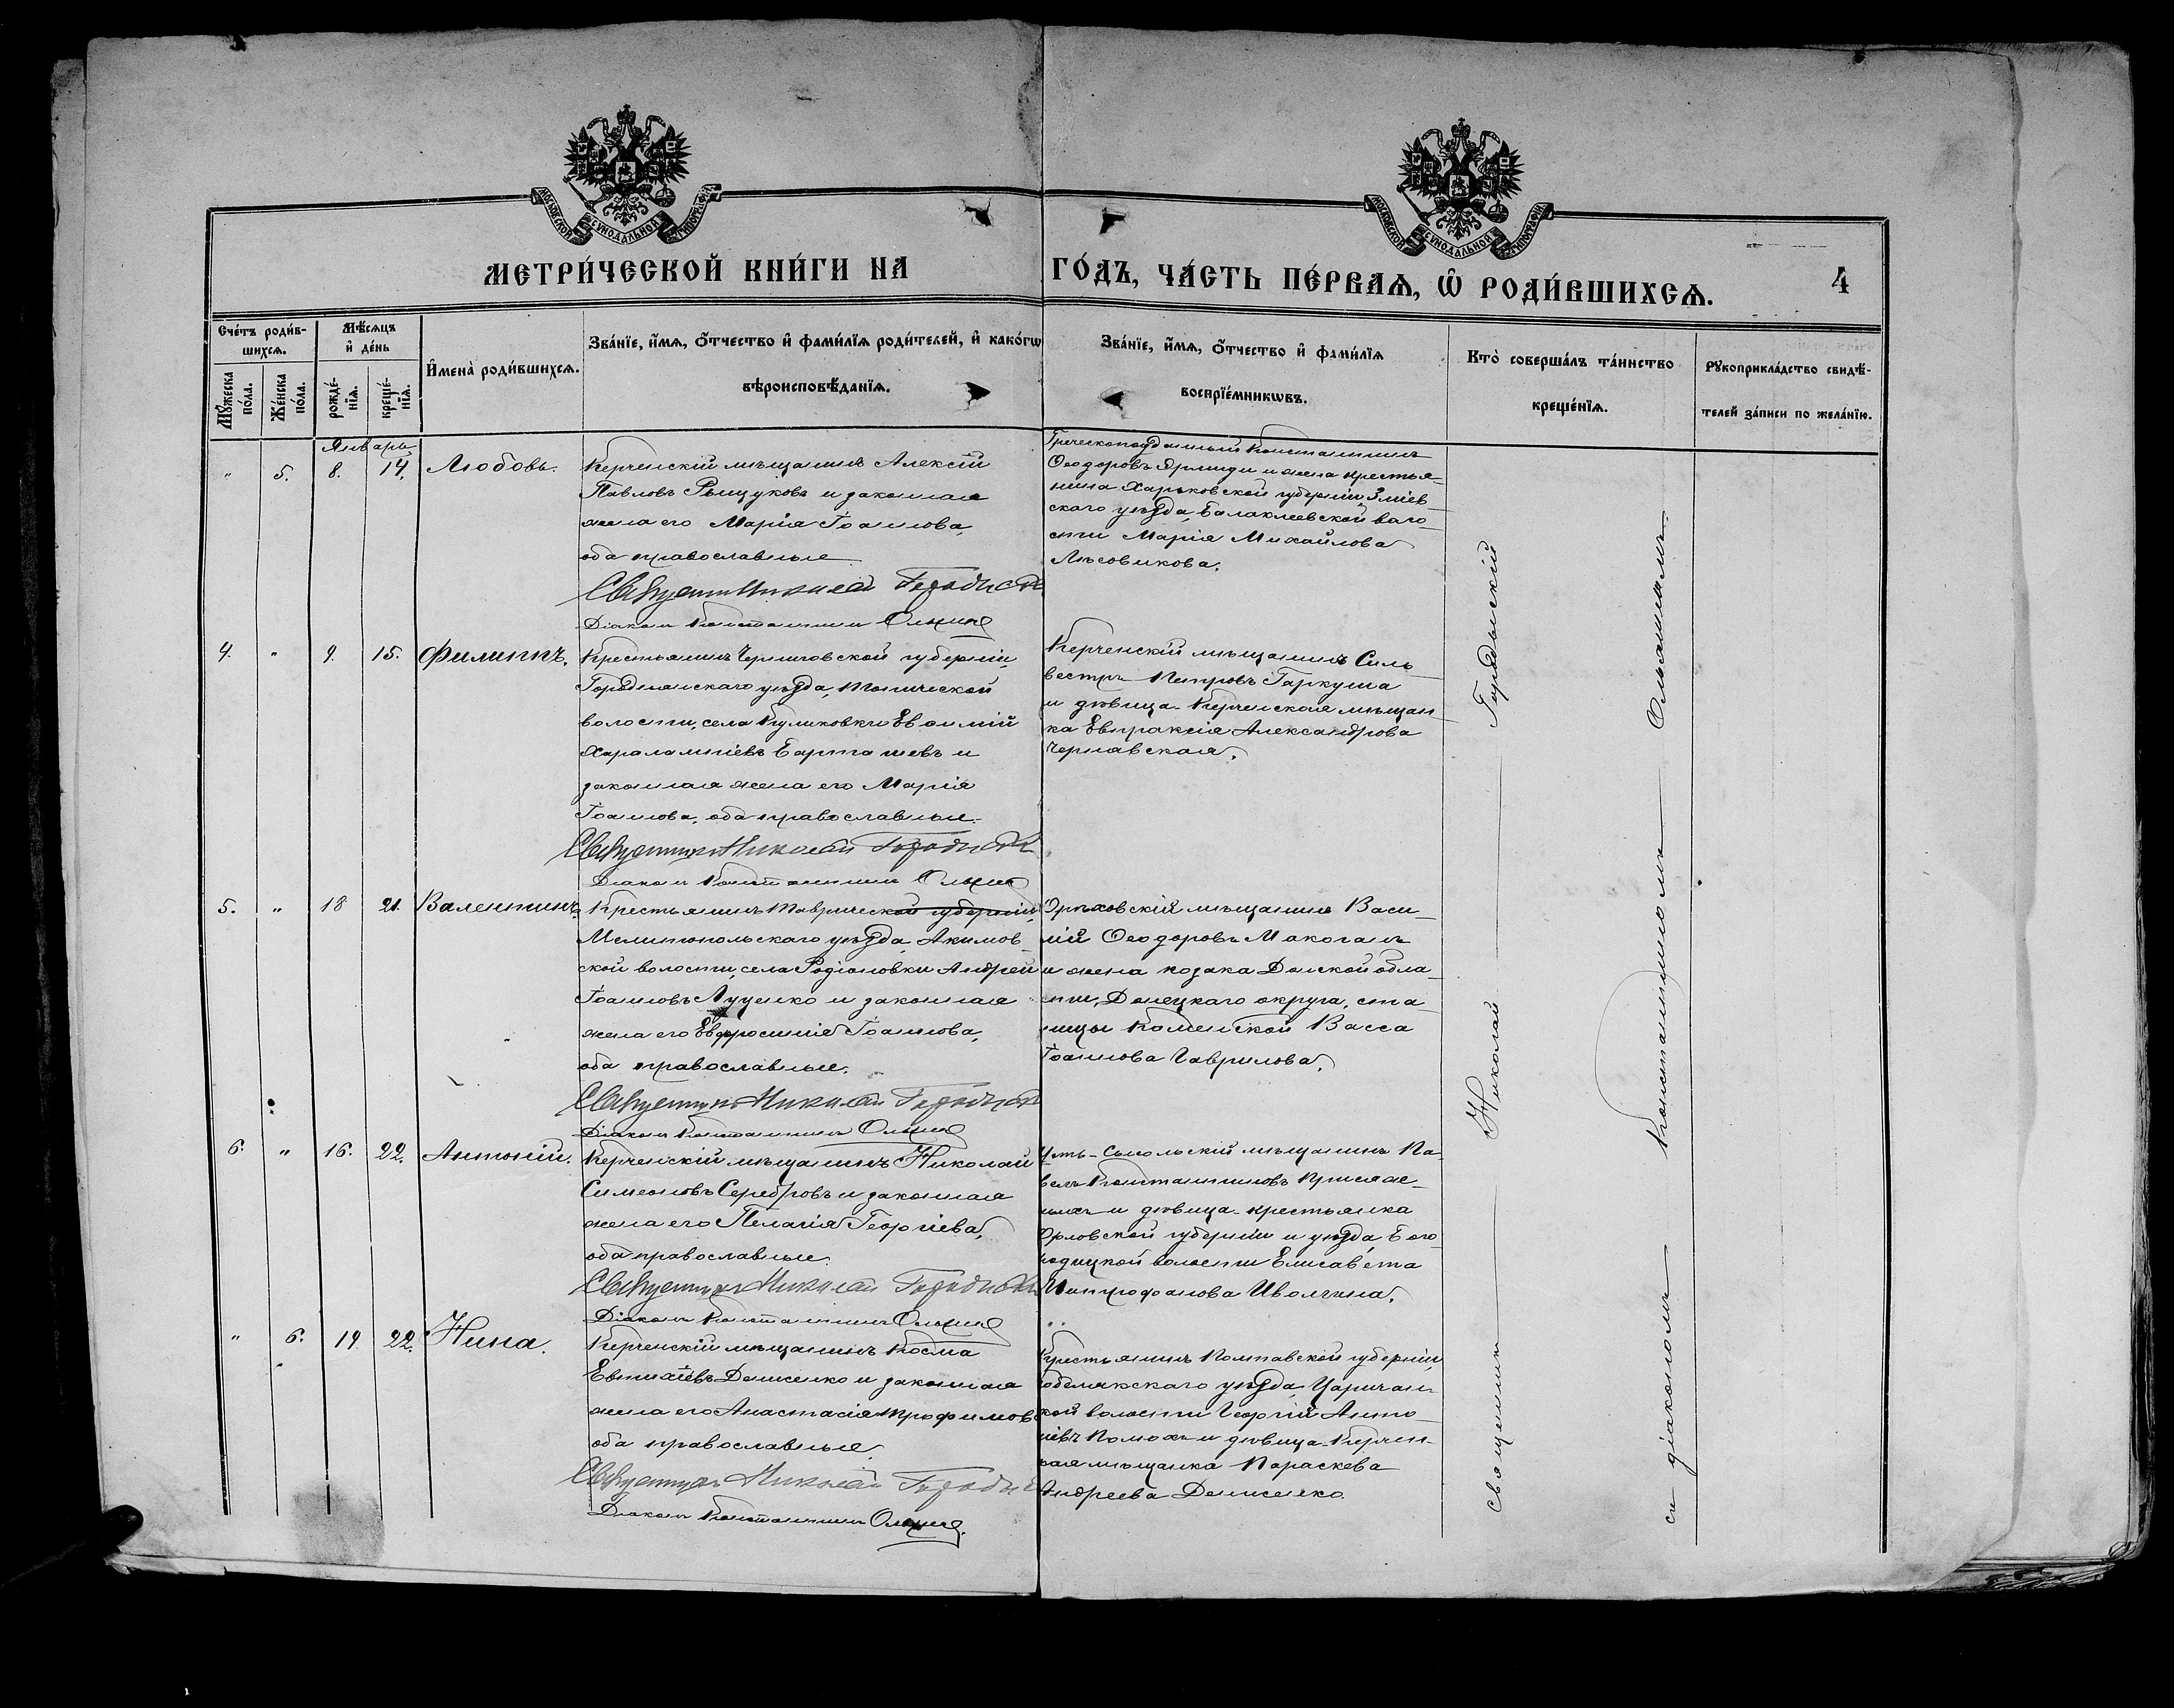 МОСКОВСКОЙ СѴНОДАЛЬНОЙ ТИПОГРАФІИ
МОСКОВСКОЙ СѴНОДАЛЬНОЙ ТИПОГРАФІИ
МЕТРИ́ЧЕСКОЙ КНИ́ГИ НА ГО́ДЪ, ЧА́СТЬ ПЕ́РВАѦ, Ѡ҆ РОДИ́ВШИХСѦ.
4
Сче́тъ роди́в-
шихсѧ.
Мꙋ́жеска по́ла.
Же́нска по́ла.
Мѣ́сѧцъ
и҆ де́нь
рожде́-
нїѧ.
креще́-
нїѧ.
И҆мена̀ роди́вшихсѧ.
Зва́нїе, и҆́мѧ, ѻ҆́тчество и҆ фами́лїѧ роди́телей, и҆ како́гѡ
вѣроисповѣ́данїѧ.
Зва́нїе, и҆́мѧ, ѻ҆́тчество и҆ фами́лїѧ
воспрїе́мникѡвъ.
Кто̀ соверша́лъ та́инство
креще́нїѧ.
Рꙋкоприкла́дство свидѣ́-
телей за́писи по жела́нїю.
Январь
" 5. 8. 14. Любовь.
Керченскій мѣщанинъ Алексій
Павловъ и законная
жена его Марія Іоаннова,
оба православные
Священникъ Николай
Діаконъ Константинъ
Греческоподданный Константинъ
Ѳеодоровъ и жена крестья-
нина Харьковской губерніи, Зміев-
скаго уѣзда, Балаклеевской воло-
сти Марія Михайлова
Лѣсовикова.
4. " 9. 15. Филиппъ.
Крестьянинъ Черниговской губерніи,
Городнянскаго уѣзда,
волости, села Куликовки Евѳимій
Харалампіевъ Барташевъ и
законная жена его Марія
Іоаннова, оба православные.
Священникъ Николай
Діаконъ Константинъ
Керченскій мѣщанинъ Силь-
вестръ Петровъ Гаркуша
и дѣвица-Керченская мѣщан-
ка Евпраксія Александрова
Чернавская.
5. " 18 21. Валентинъ.
Крестьянинъ Таврической губерніи,
Мелитопольскаго уѣзда, Акимов-
ской волости, села Родіоновки Андрей
Іоанновъ Луценко и законная
жена его Евфросинія Іоаннова,
оба православные.
Священникъ Николай
Діаконъ Константинъ
Орѣховскій мѣщанинъ Васи-
лій Ѳеодоровъ Макоганъ
и жена козака Донской обла-
сти, Донецкаго округа, ста-
ницы Каменской Васса
Іоаннова Гаврилова.
6. " 16. 22. Антоній.
Керченскій мѣщанинъ Николай
Симеоновъ Серебровъ и законная
жена его Пелагія Георгіева,
оба православные.
Священникъ Николай
Діаконъ Константинъ
Усть-Сысольскій мѣщанинъ Па-
велъ Константиновъ
и дѣвица-крестьянка
Орловской губерніи и уѣзда, Бого-
родицкой волости Елисавета
Митрофанова Иволгина.
" 6. 19. 22. Нина.
Керченскій мѣщанинъ Косма
Евтихіевъ Денисенко и законная
жена его Анастасія Трофимова
оба православные.
Священникъ Николай
Діаконъ Константинъ
Крестьянинъ Полтавской губерніи,
Кобелякскаго уѣзда, Царичан-
ской волости Георгій Анто-
ніевъ и дѣвица-Керчен-
ская мѣщанка Параскева
Андреева Денисенко.
Священникъ Николай
съ діакономъ Константиномъ